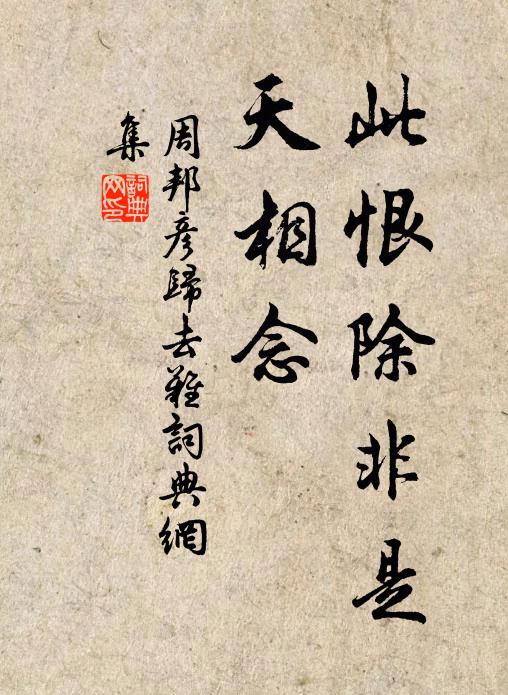 此恨除非是
天相念
周邦彥歸去難詞典網
集
詞典
网印